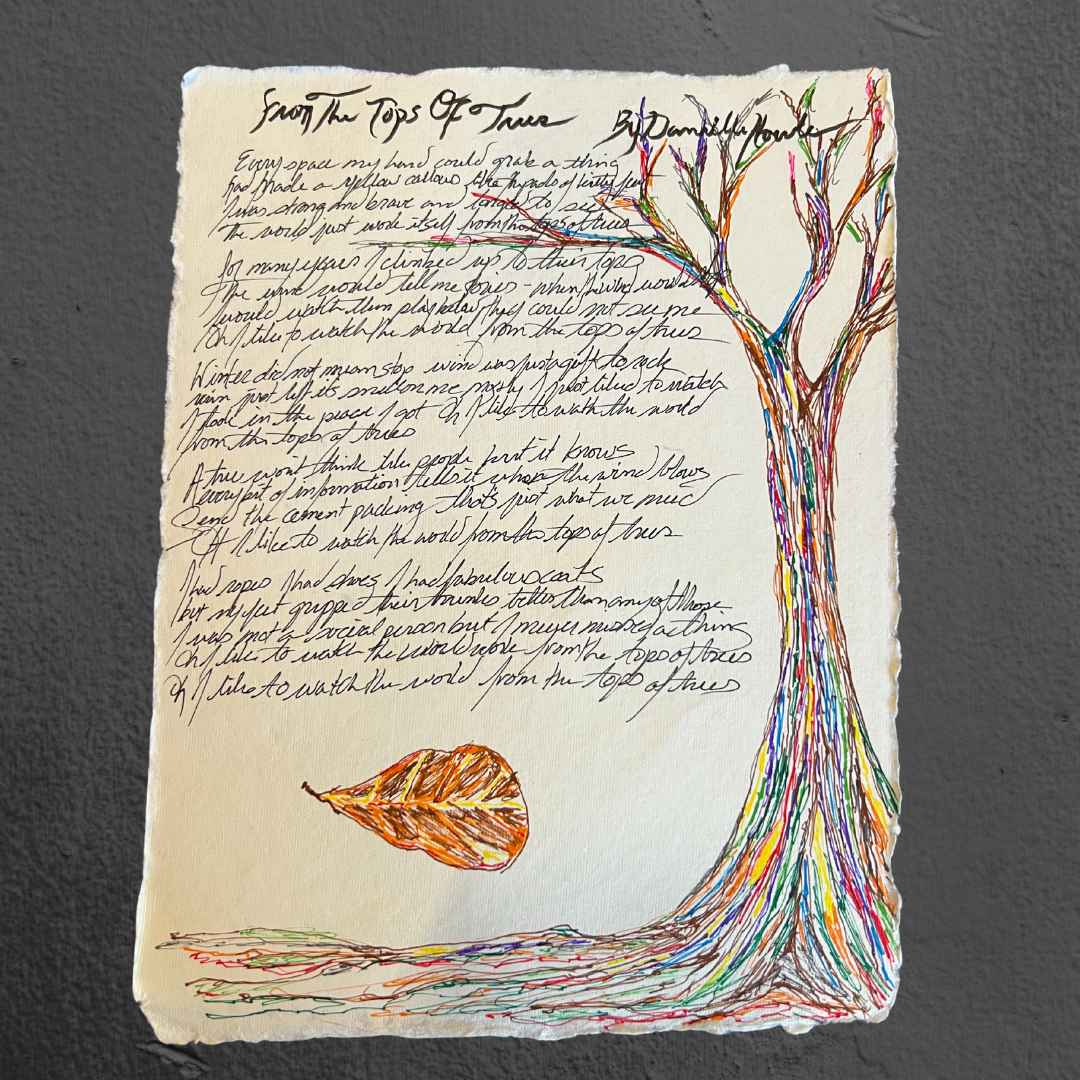 From The Tops Of Trees
By Daniella
Every space my hand could grab a thing
had made a yellow callous like hands of
I was strong and brave and longed to see
the world just work itself from the tops of trees
for many years I climbed up to their tops
The wind would tell me - when the wind would
I would watch them play below they could not see me
Oh I like to watch the world from the tops of trees
Winter did not mean stop wind was just a gift to rock
rain just left its on me mostly I just liked to watch
I took in the peace I got Oh I like to watch the world
from the tops of trees
A tree won't think like people but it knows
every bit of information tells it where the wind blows
Send the cement packing that's just what we need
Oh I like to watch the world from the tops of trees
I had ropes I had shoes I had fabulous coats
but my feet gripped their better than any of those
I was not a social person but I never missed a thing
Oh I like to watch the world work from the tops of trees
Oh I like to watch the world from the tops of trees